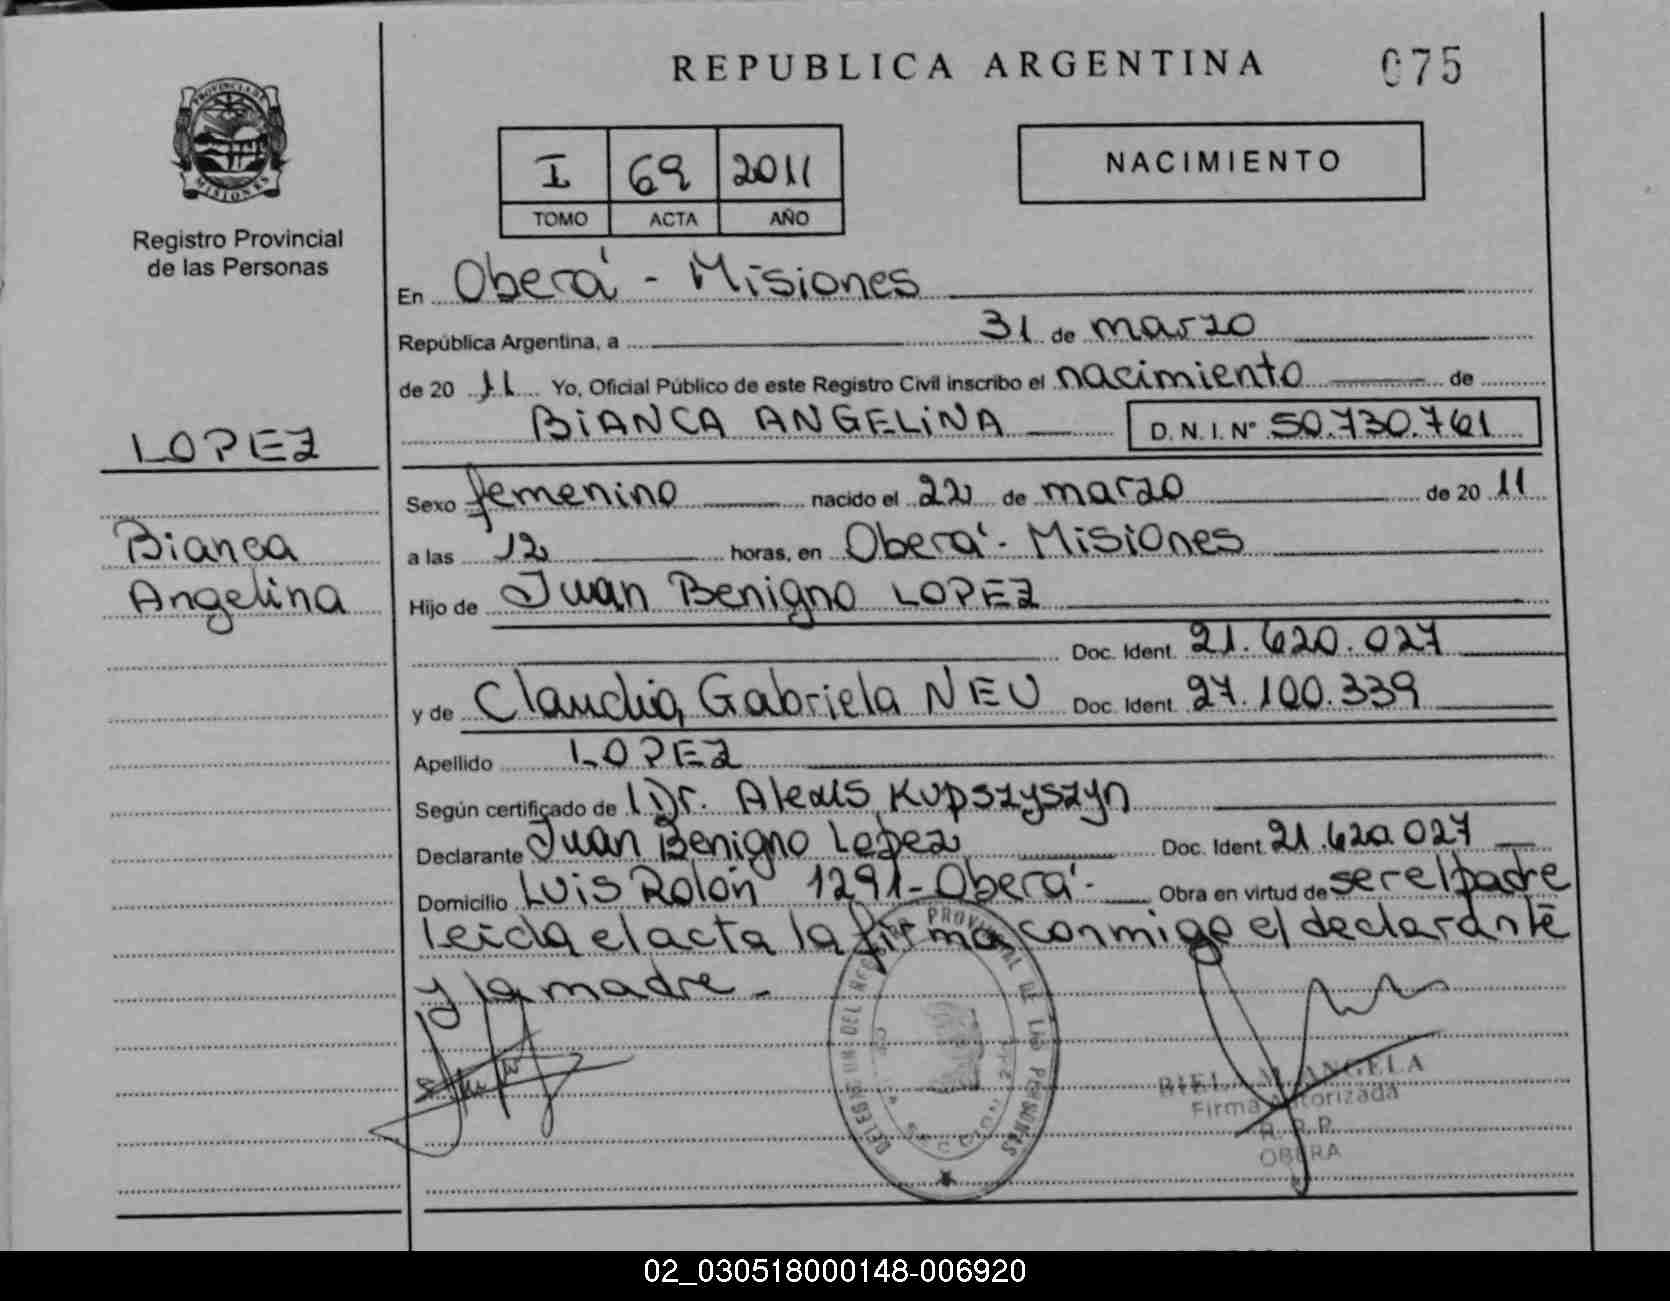 PROVINCIA DE
MISIONES
Registro Provincial
de las Personas
LOPEZ
Bianca
Angelina
REPUBLICA ARGENTINA
075
I 69 2011
TOMO ACTA AÑO
NACIMIENTO
En Oberá - Misiones
República Argentina, a 31 de marzo
de 20 11 Yo, Oficial Público de este Registro Civil inscribo el nacimiento de
BIANCA ANGELINA D. N. I. N° 50.730.761
Sexo femenino nacido el 22 de marzo de 20 11
a las 12 horas, en Oberá - Misiones
Hijo de Juan Benigno LOPEZ
Doc. Ident. 21.620.027
y de Claudia Gabriela NEU Doc. Ident. 27.100.339
Apellido LOPEZ
Según certificado de Dr. Alexis Kupszyszyn
Declarante Juan Benigno Lopez Doc. Ident. 21.620.027
Domicilio Luis Rolón 1291 - Oberá - Obra en virtud de ser el padre
leida el acta la firma conmigo el declarante
y la madre -
PROVINCIAL DE LAS PERSONAS
SECCION 2da
ANGELA
Firma Autorizada
R. P. P.
OBERA
02_030518000148-006920